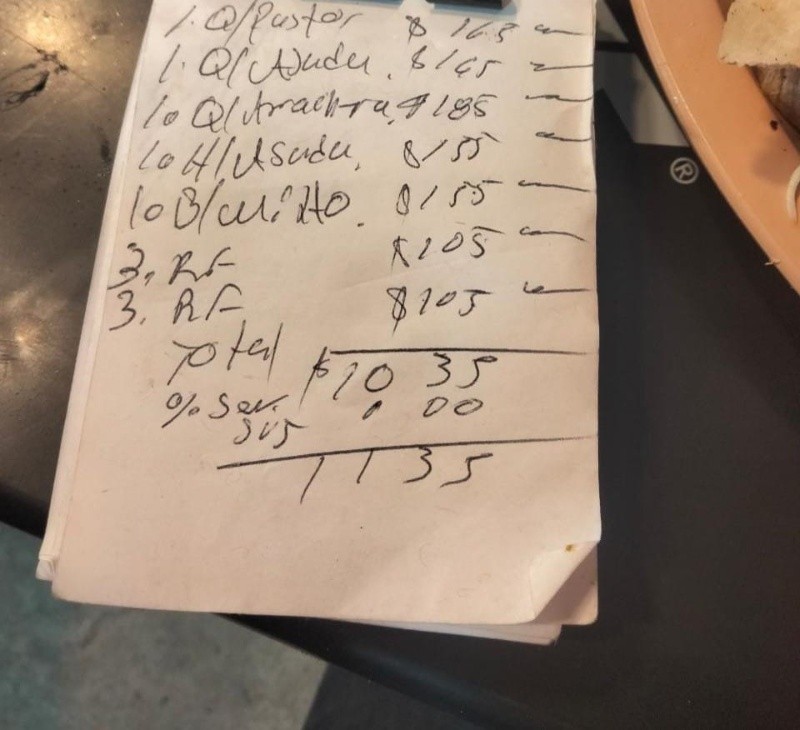 1. Q/Pastor $ 165 —
1. Q/Asada. $165 —
1o Q/Arrachera. $185 —
1o H/Asada. $155 —
1o B/Mixto. $155 —
3. RF $105 —
3. RF $105 —
Total $10 35
% Ser. 1 00
1135
®